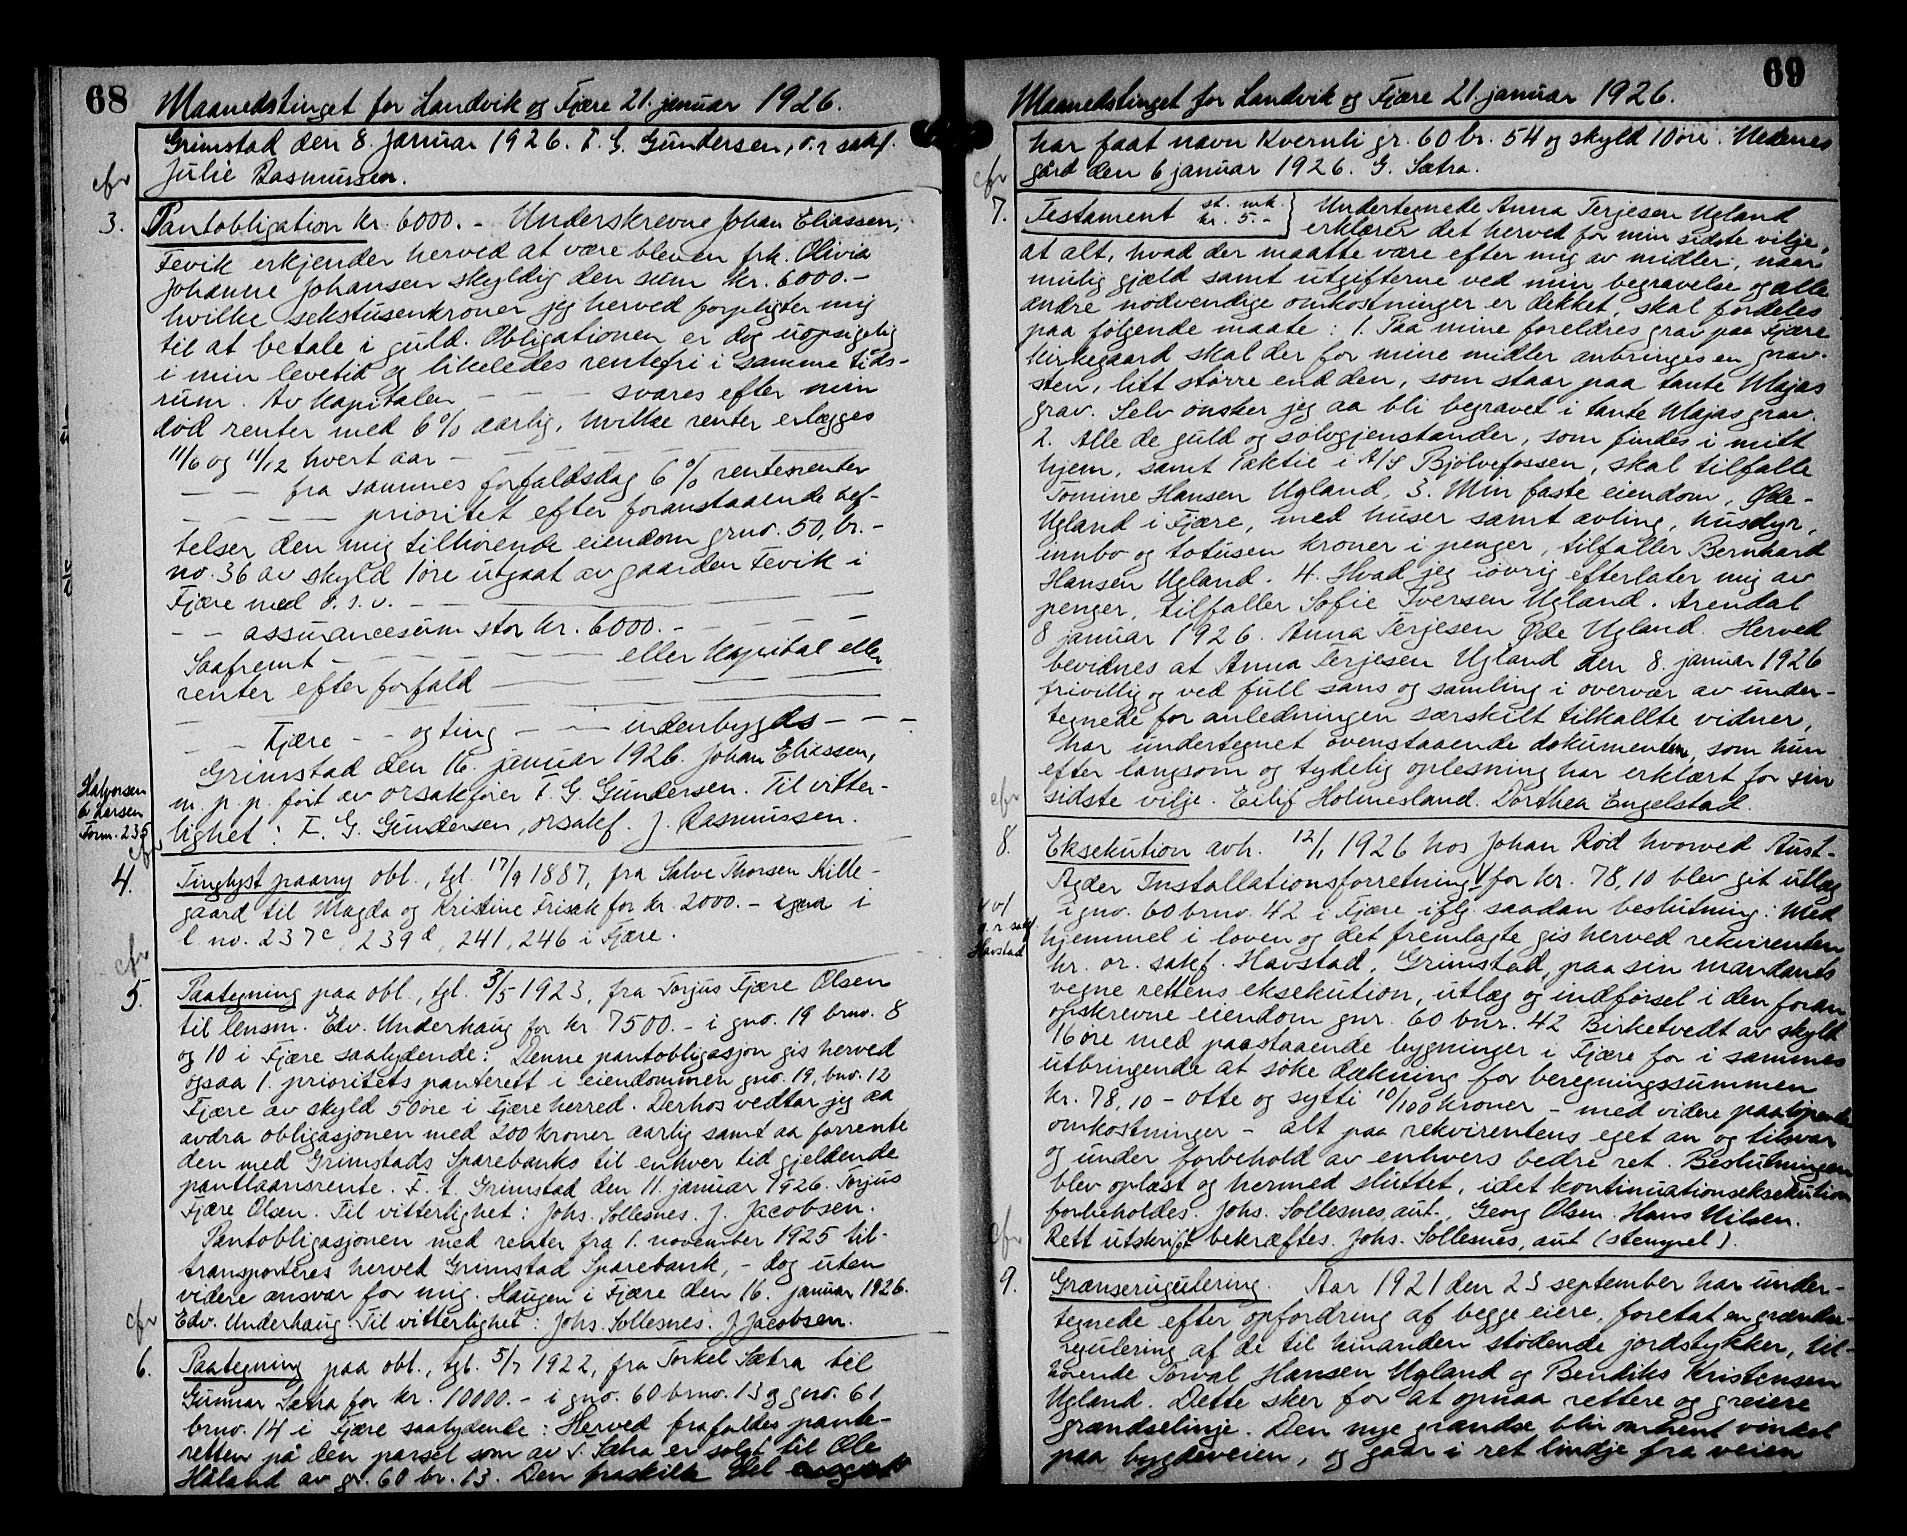 68
Maanedstinget for Landvik og Fjære 21. januar 1926.
Grimstad den 8. januar 1926. F. G. Gundersen, o.r sakf.
Julie Rasmussen.
cfr
3. Pantobligation kr. 6000. - Underskrevne Johan Eliassen,
Fevik erkjender herved at være bleven frk. Olivia
Johanne Johansen skyldig den sum kr. 6000.-
hvilke sekstusenkroner jeg herved forpligter mig
til at betale i guld. Obligationen er dog uopsigelig
i min levetid og likeledes rentefri i samme tids-
rum. Av kapitalen - - - svares efter min
död renter med 6% aarlig, hvilke renter erlægges
11/6 og 11/12 hvert aar - - - -
- - fra sammes forfaldsdag 6% rentesrenter
- - - - prioritet efter foranstaaende hef-
telser den mig tilhörende eiendom gno. 50, br.-
no. 36 av skyld 1 öre utgaat av gaarden Fevik i
Fjære med o.s.v. - - - -
- - assurancesum stor kr. 6000. - - - -
Saafremt - - - - eller kapital eller
renter efter forfald - - - -
- - Fjære - - og ting - - - udenbygds - - -
Grimstad den 16. januar 1926. Johan Eliassen,
m. p. p. fört av orsakförer F. G. Gundersen. Til vitter-
Halvorsen
& Larsen
Form. 235
lighet: F. G. Gundersen, orsakf. J. Rasmussen.
cfr
4. Tinglyst paany obl., tgl. 17/9 1887, fra Salve Thorsen Kille-
gaard til Magda og Kristine Frisak for kr. 2000.- i
l. no. 237c, 239d, 241, 246 i Fjære.
cfr
5. Paategning paa obl., tgl. 3/5 1923, fra Torjus Fjære Olsen
til lensm. Edv. Underhaug for kr. 7500.- i gno. 19 brno. 8
og 10 i Fjære saalydende: Denne pantobligasjon gis herved
ogsaa 1. prioritets panterett i eiendommen gno. 19, bno. 12
Fjære av skyld 50 öre i Fjære herred. Derhos vedtar jeg aa
avdra obligasjonen med 200 kroner aarlig samt aa forrente
den med Grimstads Sparebanks til enhver tid gjeldende
pantlaansrente. F. t. Grimstad den 11. januar 1926. Torjus
Fjære Olsen. Til vitterlighet: Johs. Sollesnes. J. Jacobsen.
Pantobligasjonen med renter fra 1. november 1925 til-
transporteres herved Grimstad Sparebank, - dog uten
videre ansvar for mig. Haugen i Fjære den 16. januar 1926.
Edv. Underhaug. Til vitterlighet: Johs. Sollesnes. J. Jacobsen.
cfr
6. Paategning paa obl., tgl. 5/7 1922, fra Torkel Sætra til
Gunnar Sætra for kr. 10000.- i gno. 60 brno. 13 og gno. 61
brno. 14 i Fjære saalydende: Herved frafaldes pante-
retten på den parsel som av T. Sætra er solgt til Ole
Håland av gr. 60 br. 13. Den fraskilte del
69
Maanedstinget for Landvik og Fjære 21 januar 1926.
har faat navn Kvernli gr. 60 br. 54 og skyld 10 öre. Nedenes
cfr
gård den 6 januar 1926. G. Sætra.
7. Testament st. mk. kr. 5.- } Undertegnede Anna Terjesen Ugland
erklærer det herved for min sidste vilje,
at alt, hvad der maatte være efter mig av midler, naar
mulig gjæld samt utgifterne ved min begravelse og alle
andre nödvendige omkostninger er dekket, skal fordeles
paa fölgende maate: 1. Paa mine forældres grav paa Fjære
kirkegaard skal der for mine midler anbringes en grav-
sten, litt större end den, som staar paa tante Majas
grav. Selv önsker jeg aa bli begravet i tante Majas grav.
2. Alle de guld og sölvgjenstander, som findes i mitt
hjem, samt 1 aktie i A/S Bjölvefossen, skal tilfalle
Tomine Hansen Ugland. 3. Min faste eiendom, Öde-
Ugland i Fjære, med huser samt avling, husdyr,
innbo og totusen kroner i penger, tilfaller Bernhard
Hansen Ugland. 4. Hvad jeg iövrig efterlater mig av
penger, tilfaller Sofie Iversen Ugland. Arendal
8 januar 1926. Anna Terjesen Öde Ugland. Herved
bevidnes at Anna Terjesen Ugland den 8. januar 1926
frivillig og ved full sans og samling i overvær av under-
tegnede for anledningen særskilt tilkallte vidner,
har undertegnet ovenstaaende dokument, som hun
efter langsom og tydelig oplesning har erklært for sin
cfr
sidste vilje. Eilif Holmesland. Dorthea Engelstad.
8. Eksekution avh. 12/1 1926 hos Johan Rød hvorved Aust-
Agder Installationsforretning for kr. 78,10 blev git utlæg
i gno. 60 brno. 42 i Fjære iflg. saadan beslutning: Med
o.r sakf.
Havstad
hjemmel i loven og det fremlagte gis herved rekvirenten
hr. or. sakf. Havstad, Grimstad, paa sin mandants
vegne rettens eksekution, utlæg og indförsel i den foran
opskrevne eiendom gnr. 60 bnr. 42 Birketvedt av skyld
16 öre med paastaaende bygninger i Fjære for i sammes
utbringende at söke dækning for beregningssummen
kr. 78,10 - otte og sytti 10/100 kroner - med videre paalöpende
omkostninger - alt paa rekvirentens eget an og tilsvar
og under forbehold av enhvers bedre ret. Beslutningen
blev oplæst og hermed sluttet, idet kontinuationseksekution
forbeholdes. Johs. Sollesnes, aut. Georg Olsen. Hans Nilsen.
cfr
Rett utskrift bekræftes. Johs. Sollesnes, aut (stempel).
9. Grænseregulering. Aar 1921 den 23 september har under-
tegnede efter opfordring af begge eiere, foretat en grændse-
regulering af de til hinanden stödende jordstykker, til-
hörende Torval Hansen Ugland og Bendiks Kristensen
Ugland. Dette sker for at opnaa rettere og greiere
grændselinje. Den nye grændse blir omtrent vinkel
paa bygdeveien, og gaar i ret lindje fra veien